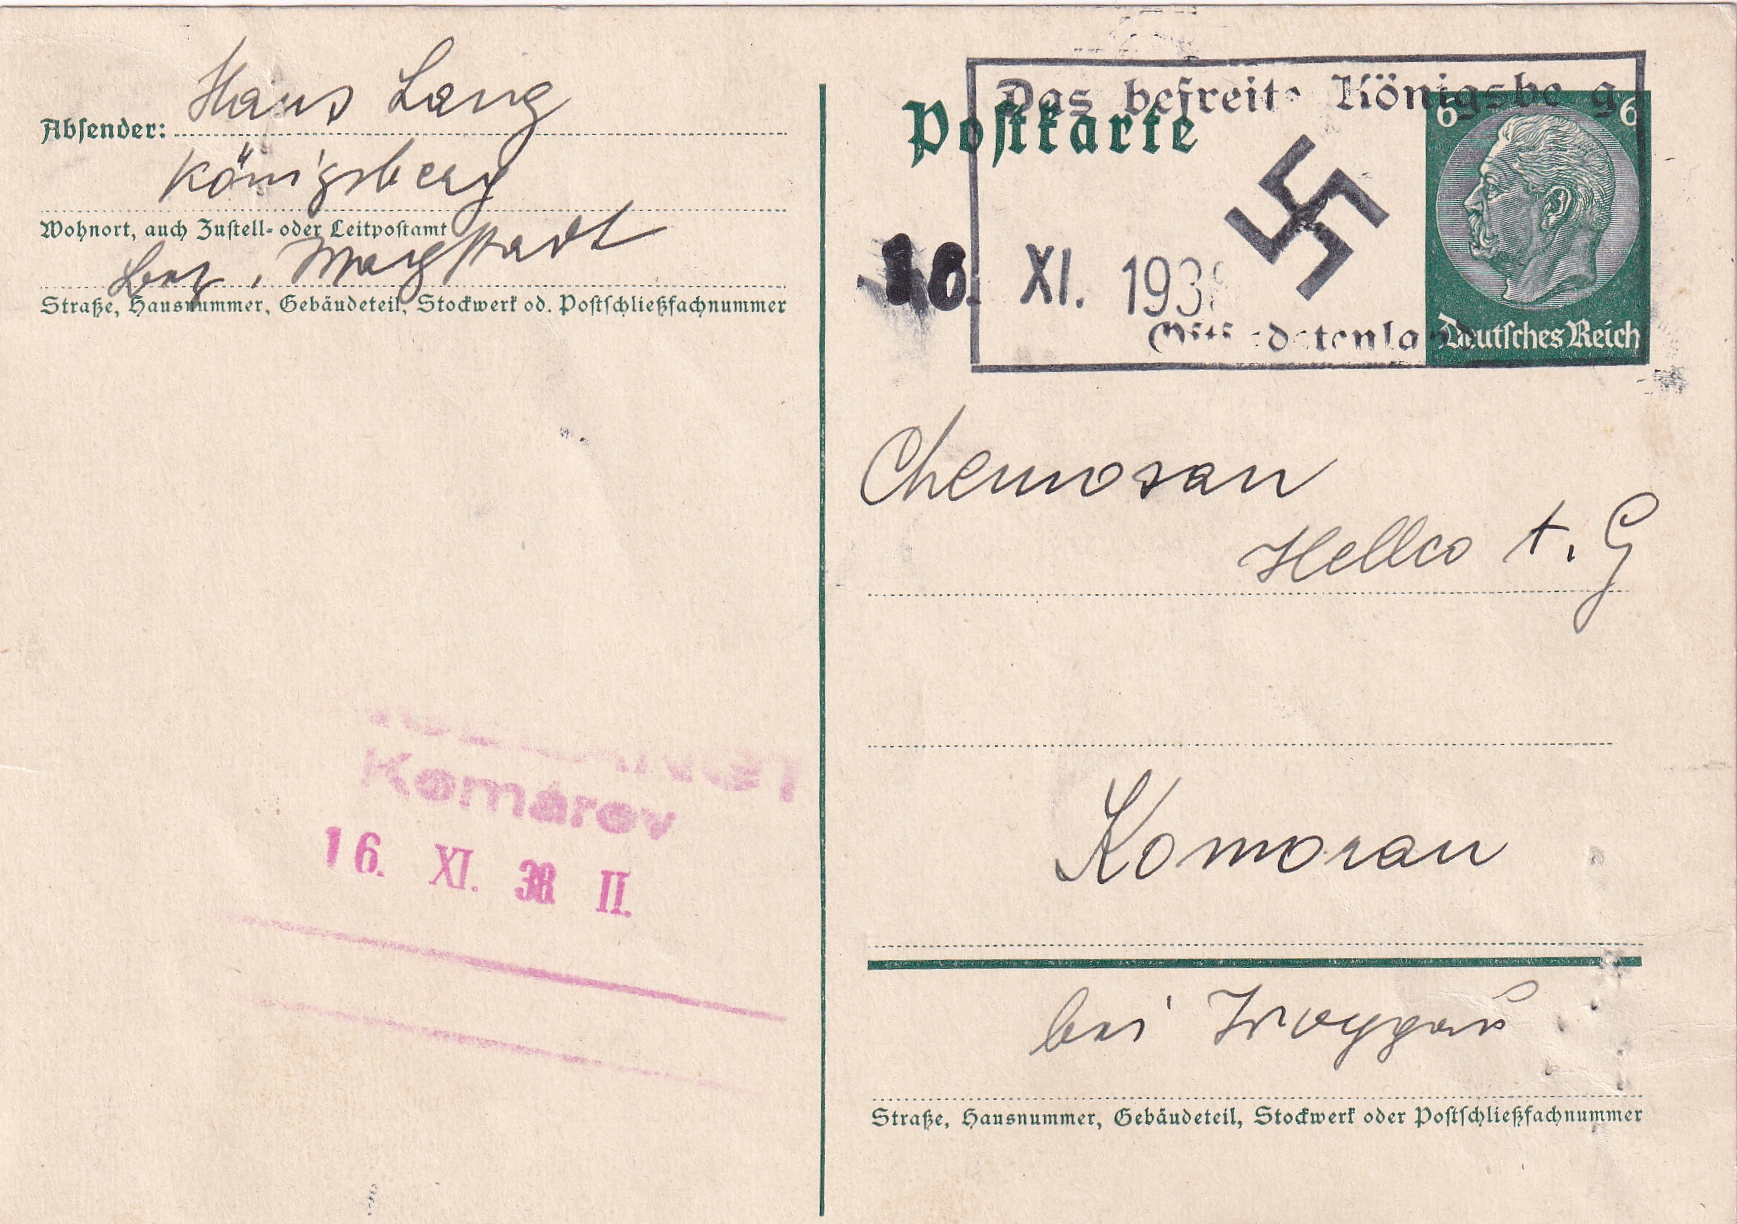 Absender: Hans Lang
Königsberg
Wohnort, auch Zustell- oder Leitpostamt
Straße, Hausnummer, Gebäudeteil, Stockwerk od. Postschließfachnummer
Postkarte
Das befreite Königsbe g
16. XI. 1938
6 6
Deutsches Reich
Chemosan
Hellco A. G
Komoran
bei
Straße, Hausnummer, Gebäudeteil, Stockwerk oder Postschließfachnummer
Komárov
16. XI. 38 II.